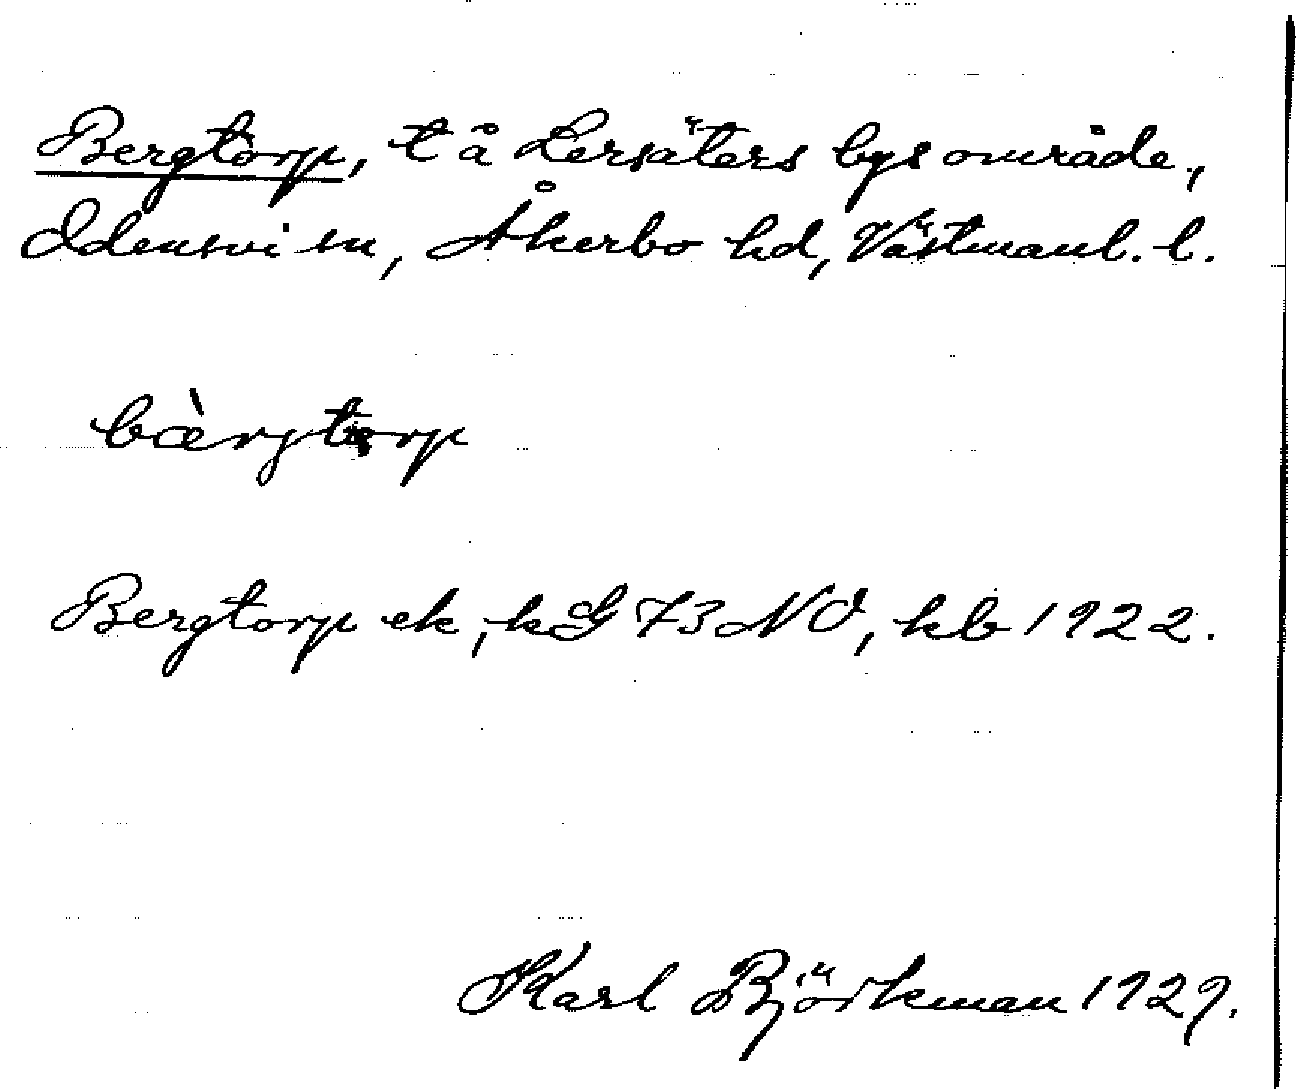 Bergtorp, t å Lersäters bys område,
Odensvi sn, Åkerbo hd, Västmanl. l.
bærgtorp
Bergtorp ek, kG 73 NO, kb 1922.
Karl Björkman 1929.